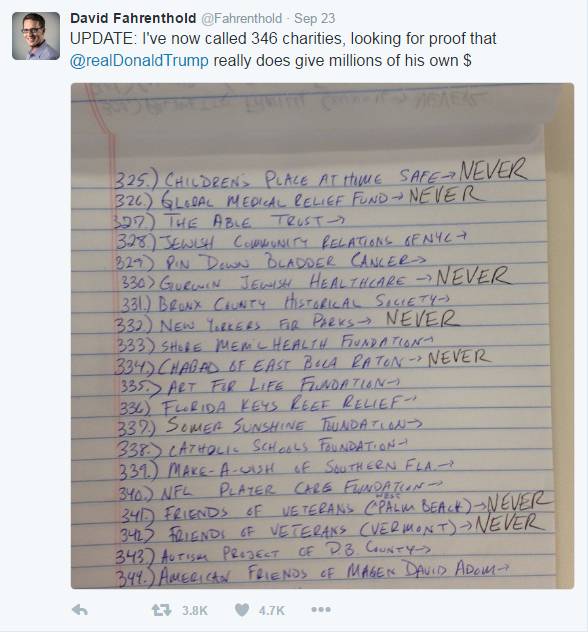 David Fahrenthold @Fahrenthold · Sep 23
UPDATE: I've now called 346 charities, looking for proof that
@realDonaldTrump really does give millions of his own $
325.) CHILDREN'S PLACE AT HOME SAFE→NEVER
326.) GLOBAL MEDICAL RELIEF FUND→NEVER
327.) THE ABLE TRUST→
328) JEWISH COMMUNITY RELATIONS OF NYC→
329) PIN DOWN BLADDER CANCER→
330) GURWIN JEWISH HEALTHCARE→NEVER
331.) BRONX COUNTY HISTORICAL SOCIETY→
332) NEW YORKERS FOR PARKS→ NEVER
333) SHORE MEM'L HEALTH FOUNDATION→
334) CHABAD OF EAST BOCA RATON→NEVER
335.) ART FOR LIFE FOUNDATION→
336) FLORIDA KEYS REEF RELIEF→
337) SOMER SUNSHINE FOUNDATION→
338.) CATHOLIC SCHOOLS FOUNDATION→
339.) MAKE-A-WISH OF SOUTHERN FLA.→
340.) NFL PLAYER CARE FOUNDATION→
341) FRIENDS OF VETERANS (WEST PALM BEACH)→NEVER
342) FRIENDS OF VETERANS (VERMONT)→NEVER
343) AUTISM PROJECT OF P.B. COUNTY→
344.) AMERICAN FRIENDS OF MAGEN DAVID ADOM→
3.8K 4.7K